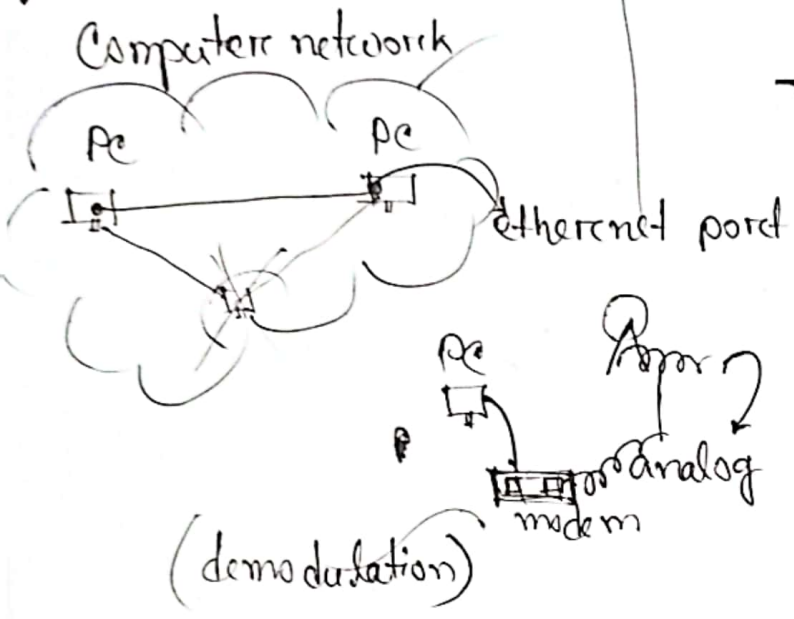 Computer network
PC
PC
Ethernet port
PC
analog
modem
(demodulation)